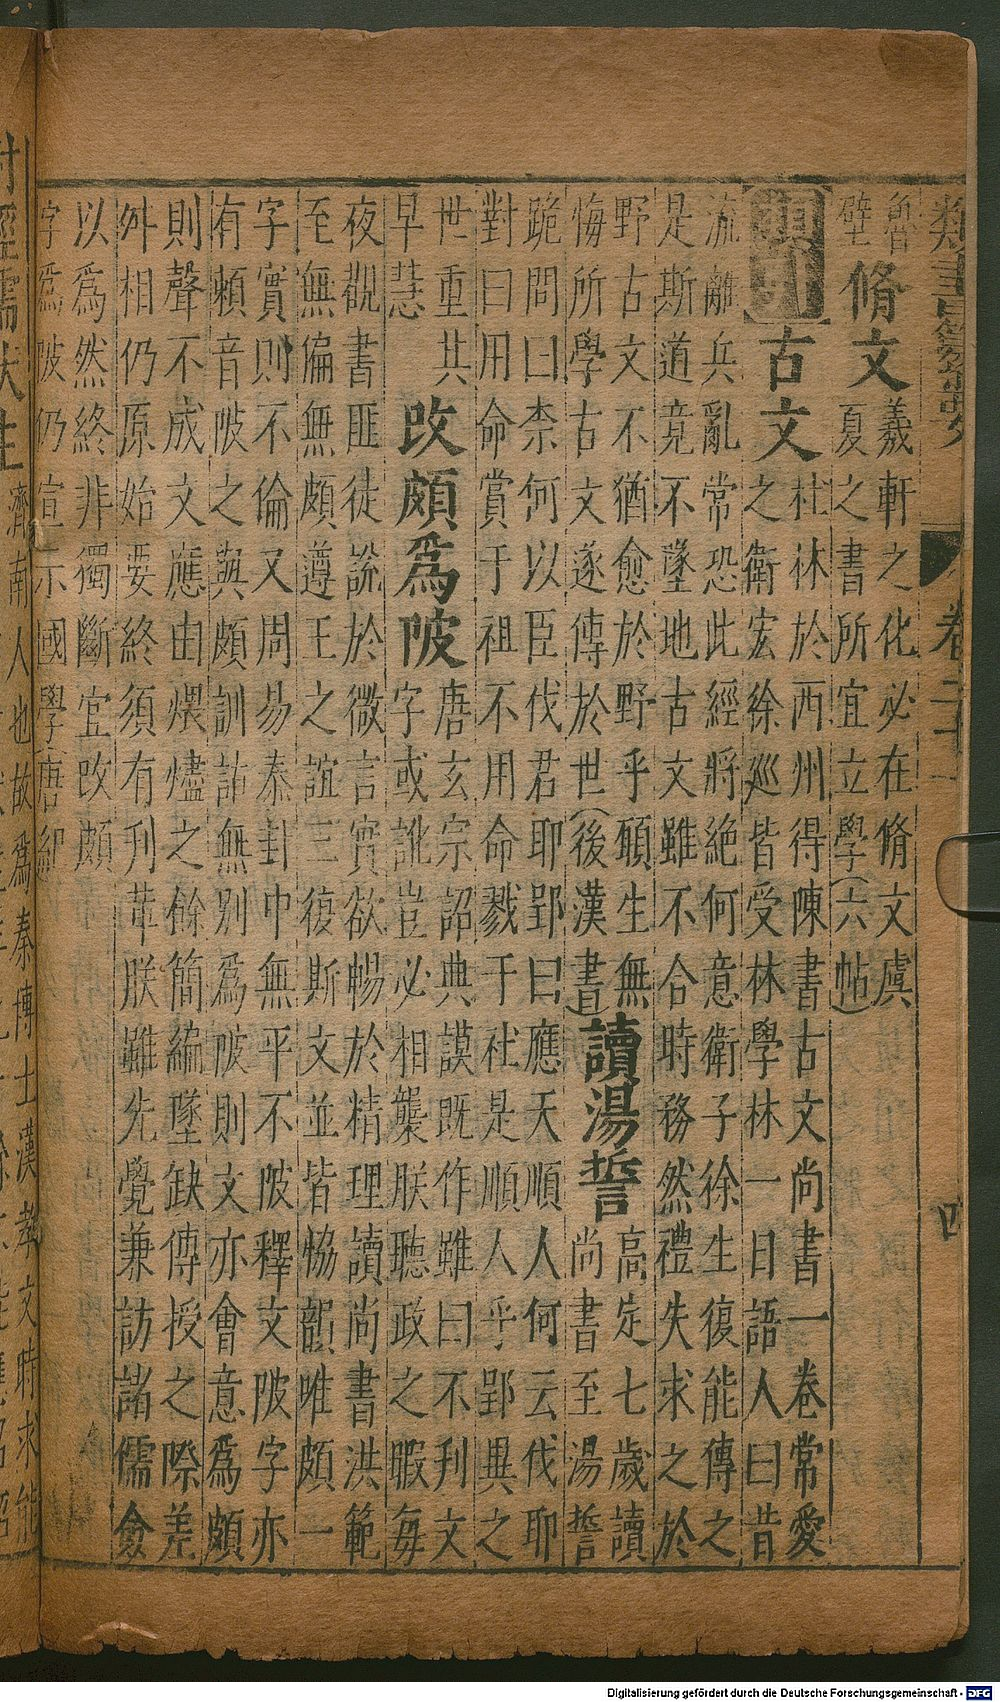 卷二十
四
魯
壁
脩文
羲軒之化必在脩文虞
夏之書所宜立學(六帖)
古文
杜林於西州得陳書古文尚書一卷常愛
之衛宏徐巡皆受林學林一日語人曰昔
流離兵亂常恐此經將絕何意衛子徐生復能傳之
是斯道竟不墜地古文雖不合時務然禮失求之於
野古文不猶愈於野乎碩生無
悔所學古文遂傳於世(後漢書)
讀湯誓
高定七歲讀
尚書至湯誓
跪問曰柰何以臣伐君耶郢曰應天順人何云伐耶
對曰用命賞于祖不用命戮于社是順人乎郢異之
世重其
早慧
改頗爲陂
唐玄宗詔典謨既作雖曰不刋文
字或訛豈必相襲朕聽政之暇每
夜觀書匪徒說於微言實欲暢於精理讀尚書洪範
至無偏無頗遵王之誼三復斯文並皆恊韻唯頗一
字實則不倫又周易泰卦中無平不陂釋文陂字亦
有頼音陂之與頗訓詁無别爲陂則文亦會意爲頗
則聲不成文應由煨燼之餘簡編墜缺傳授之際差
舛相仍原始要終須有刋革朕雖先覺兼訪諸儒僉
以爲然終非獨斷宜改頗
字爲陂仍宣示國學(唐紀
濟南人也故爲秦博士漢孝文時求能
Digitalisierung gefördert durch die Deutsche Forschungsgemeinschaft - DFG